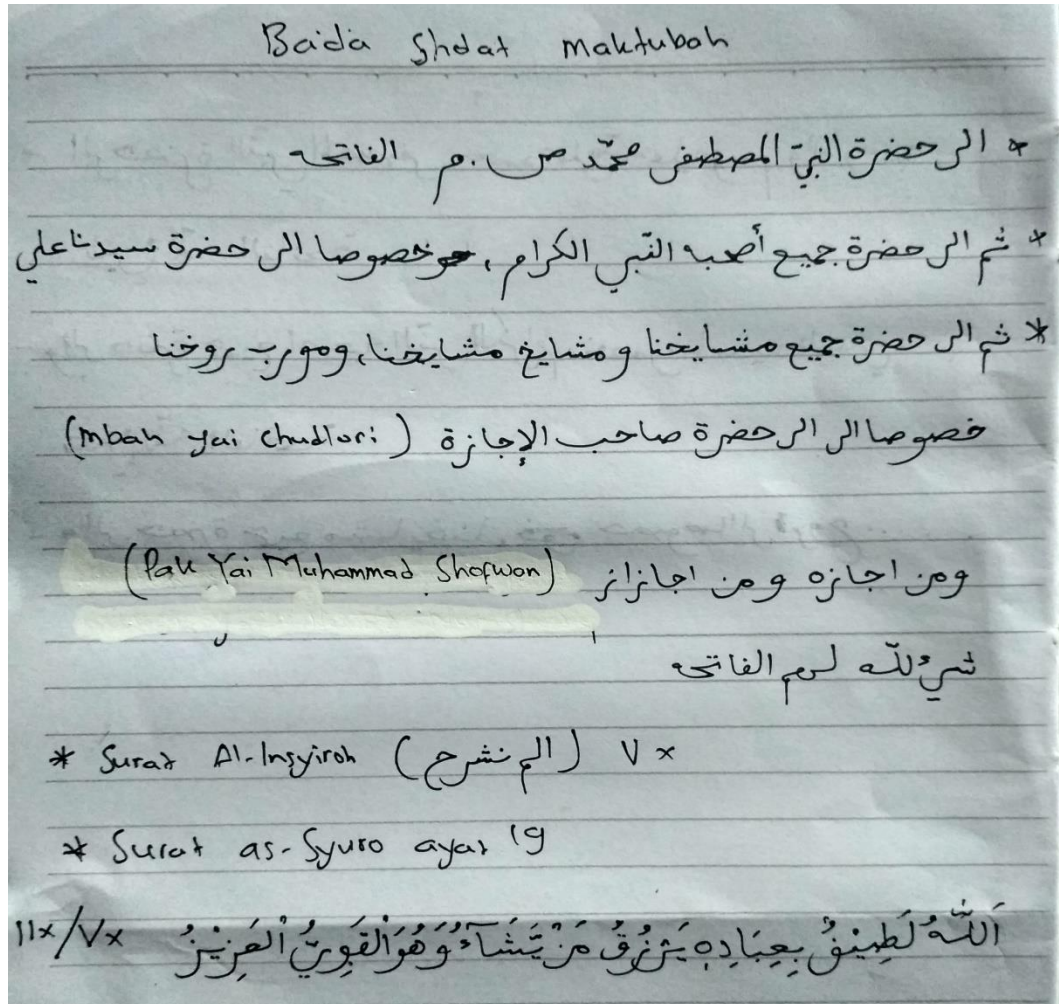 Ba'da Sholat maktubah
* الى حضرة النبيّ المصطفى محمّد ص.م الفاتحه
* ثم الى حضرة جميع أصحبه النّبي الكرام، وخصوصا الى حضرة سيدنا علي
* ثم الى حضرة جميع مشايخنا و مشايخ مشايخنا، ومورب روخنا
خصوصا الى الى حضرة صاحب الإجازة (mbah yai chudlori)
ومن اجازه ومن اجازاز (Pak Yai Muhammad Shofwan)
شيءلله لهم الفاتحه
* Surat Al-Insyiroh (الم نشرح) ٧x
* Surat as-Syuro ayat 19
اَللّٰهُ لَطِيْفٌ بِعِبَادِهٖ يَرْزُقُ مَنْ يَّشَآءُ وَهُوَ الْقَوِيُّ الْعَزِيْزُ ١١x/٧x